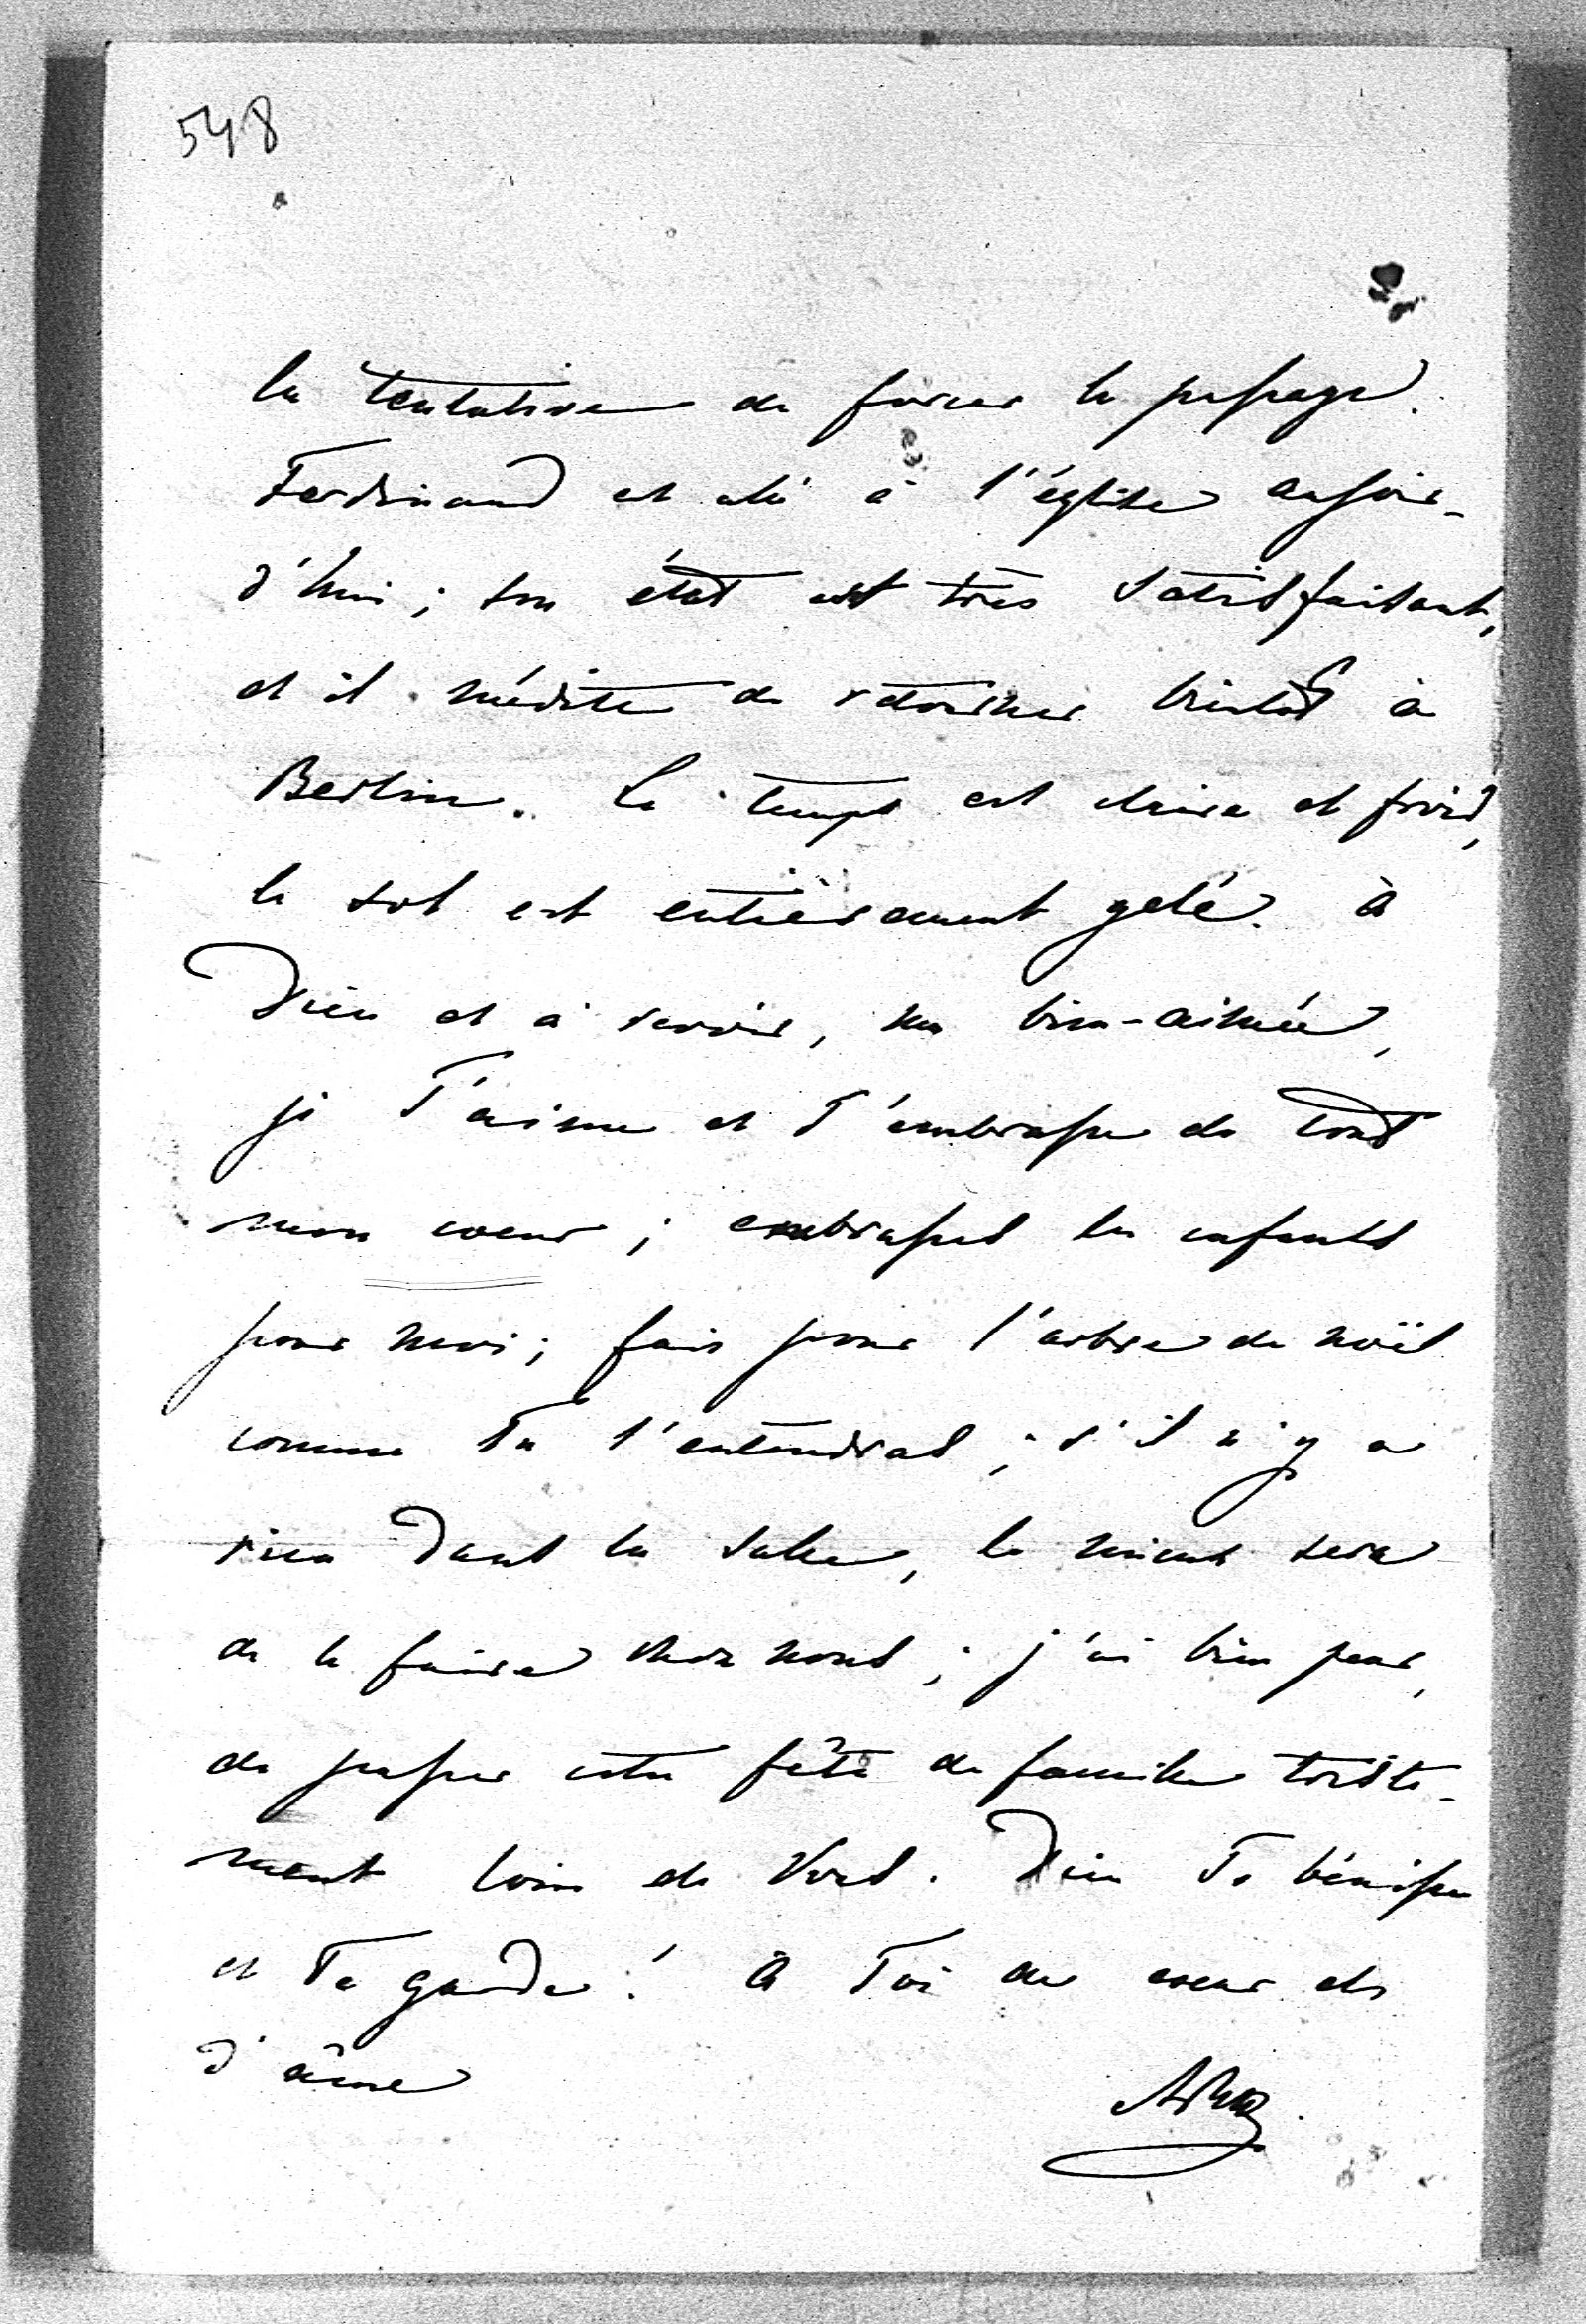 548
la tentative de forcer le passage.
Ferdinand est allé à l'église aujour-
d'hui; son état est très satisfaisant,
et il médite de retourner bientôt à
Berlin. Le temps est claire et froid,
le sol est entièrement gelé. à
Dieu et à revoir, ma bien-aimée,
je T'aime et T'embrasse de tout
mon coeur; embrasses les enfants
pour moi; fais pour l'arbre de noël
comme Tu l'entendras; s'il n'y a
rien dans la salle, le mieux sera
de le faire chez nous; j'ai bien peur,
de passer cette fête de famille triste-
ment loin de Vous. Dieu Te bénisse
et Te garde! à Toi de coeur et
d'âme